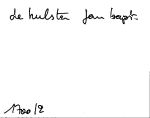 de hulster Jan bapt.
1700/2